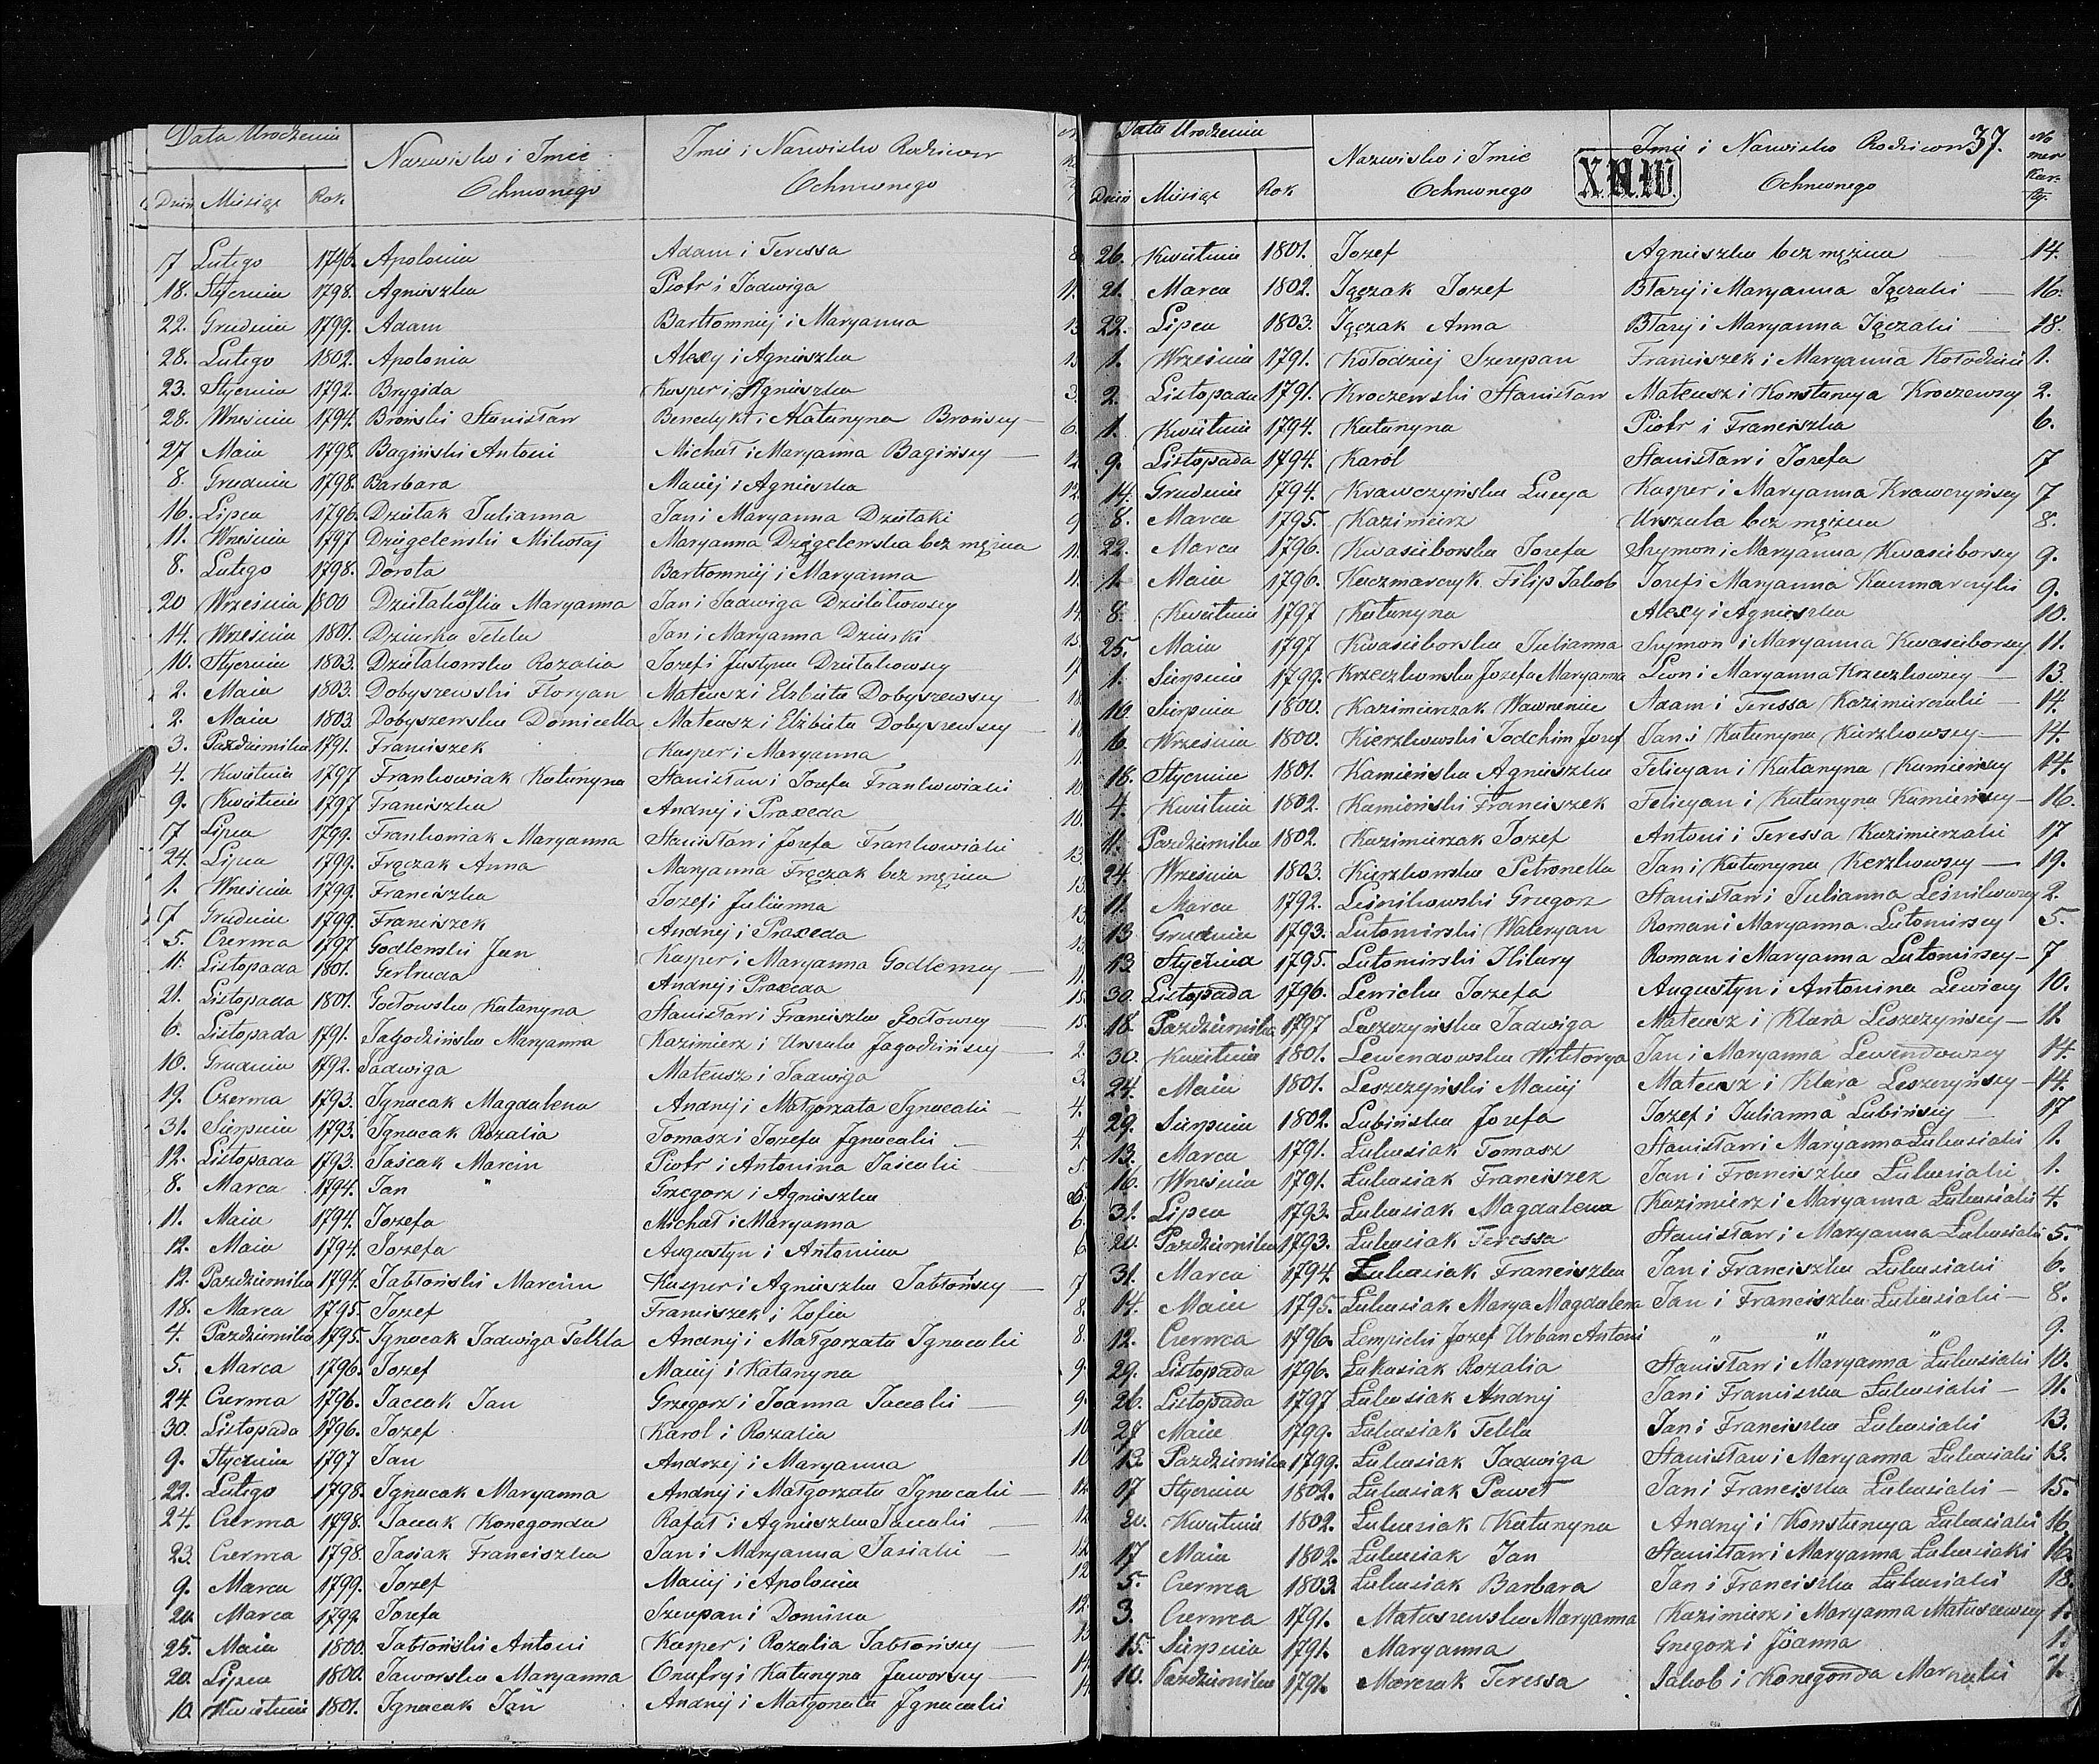 Data Urodzenia Nazwisko i Imie Ochrconego Imie i Nazwisko Rodziców Ochrconego
Dzień Miesiąc Rok
7 Lutego 1796. Apolonia Adam i Teressa 8
18. Stycznia 1798. Agniszka Piotr i Jadwiga 11.
22. Grudnia 1799. Adam Bartłomniej i Maryanna 13
28. Lutego 1802. Apolonia Alexy i Agniszka 15
23. Stycznia 1792. Brygida Kasper i Agniszka 3.
28. Wrzesnia 1794. Broński Stanisław Benedykt i Katarzyna Brońscy 6.
27 Maia 1798. Bagiński Antoni Michał i Maryanna Bagińscy 12
8. Grudnia 1798. Barbara Maciej i Agnieszka 12.
16. Lipca 1796. Dziełak Julianna Jan i Maryanna Dziełaki 9
11. Wrzesnia 1797 Dzięgelewski Mikołaj Maryanna Dzięgelewska bez mężna 11.
8. Lutego 1798. Dorota Bartłomniej i Maryanna 11.
20 Września 1800 Dziełakowska Maryanna Jan i Jadwiga Dziełakowscy 14.
14. Września 1801. Dziurka Tekla Jan i Maryanna Dziurki 15.
10. Stycznia 1803. Dziełakowska Rozalia Jozef i Justyna Dziełakowscy 17.
2. Maia 1803. Dobyszewski Floryan Mateusz i Elzbieta Dobyszewscy 18.
2. Maia 1803. Dobyszewska Domicella Mateusz i Elżbieta Dobyszewscy 18
3. Pazdziernika 1791. Franciszek Kasper i Maryanna 1.
4. Kwietnia 1797 Frankowiak Katarzyna Stanisław i Jozefa Frankowiaki 10.
9. Kwietnia 1797 Franciszka Andrzej i Praxeda 10.
17 Lipca 1799. Frankowiak Maryanna Stanisław i Jozefa Frankowiaki 13.
24. Lipca 1799. Frączak Anna Maryanna Frączak bez mężna 13.
1. Wrzesnia 1799. Franciszka Jozef i Julianna 13
7 Grudnia 1799. Franciszek Andrzej i Praxeda 13.
5. Czerwca 1797 Godlewski Jan Kasper i Maryanna Godlewscy 11.
11. Listopada 1801. Gertruda Andrzej i Praxeda 15.
21. Listopada 1801. Gołowska Katarzyna Stanisław i Franciszka Gołowscy 15.
6. Listopada 1791. Jagodzińska Maryanna Kazimierz i Urszula Jagodzińscy 2.
16. Grudnia 1792. Jadwiga Mateusz i Jadwiga 3.
19. Czerwca 1793. Ignacak Magdalena Andrzej i Małgorzata Ignacaki 4.
31. Sierpnia 1793. Ignacak Rozalia Tomasz i Jozefa Ignacaki 4
12. Listopada 1793. Jaścak Marcin Piotr i Antonina Jaścaki 5.
8. Marca 1794. Jan " Grzegorz i Agnieszka 6.
11. Maia 1794. Jozefa Michał i Maryanna 6.
12. Maia 1794. Jozefa Augustyn i Antonina 6
12. Pazdziernika 1794. Jabłoński Marcin Kasper i Agnieszka Jabłońscy 7
18. Marca 1795. Jozef Franciszek i Zofia 8.
4. Pazdziernika 1795. Ignacak Jadwiga Tekla Andrzej i Małgorzata Ignacaki 8.
5. Marca 1796. Jozef Maciej i Katarzyna 9.
24. Czerwca 1796. Jaccak Jan Grzegorz i Joanna Jaccaki 9.
30. Listopada 1796. Jozef Karol i Rozalia 10
9. Stycznia 1797 Jan Andrzej i Maryanna 10
22. Lutego 1798. Ignacak Maryanna Andrzej i Małgorzata Ignacaki 12.
24. Czerwca 1798. Jaccak Konegonda Rafał i Agnieszka Jaccaki 12.
23. Czerwca 1798. Jasiak Franciszka Jan i Maryanna Jasiaki 12
9. Marca 1799. Jozef Maciej i Apolonia 12
20. Marca 1799 Jozefa Szczepan i Domina 12.
25. Maia 1800. Jabłoński Antoni Kasper i Rozalia Jabłońscy 13
20. Lipca 1800. Jaworska Maryanna Onufry i Katarzyna Jaworscy 14
10. Kwietnia 1801. Ignacak Jan Andrzej i Małgorzata Ignacaki 14
Data Urodzenia Nazwisko i Imie Ochrconego Imie i Nazwisko Rodziców Ochrconego 37. Nomer Kar-ty.
X.III.IV.
Dzień Miesiąc Rok
26. Kwietnia 1801. Jozef Agnieszka bez mężna 14.
21. Marca 1802. Jączak Jozef Błażej i Maryanna Jączaki 16.
22. Lipca 1803. Jączak Anna Błażej i Maryanna Jączaki 18.
1. Września 1791. Kołodziej Szczepan Franciszek i Maryanna Kołodzieie 1.
2. Listopada 1791. Kroczewski Stanisław Mateusz i Konstancya Kroczewscy 2.
1. Kwietnia 1794. Katarzyna Piotr i Franciszka 6.
9. Listopada 1794. Karol Stanisław i Jozefa 7
14. Grudnia 1794. Krawczyńska Lucya Kasper i Maryanna Krawczyńscy 7
8. Marca 1795. Kazimierz Urszula bez mężna 8.
22. Marca 1796. Kwasieborska Jozefa Szymon i Maryanna Kwasieborscy 9.
1. Maia 1796. Kaczmarczyk Filip Jakob Jozef i Maryanna Kaczmarczyki 9.
8. Kwietnia 1797 Katarzyna Alexy i Agnieszka 10.
25. Maia 1797 Kwasieborska Julianna Szymon i Maryanna Kwasieborscy 11.
1. Sierpnia 1799. Krzeczkowska Jozefa Maryanna Leon i Maryanna Krzeczkowscy 13.
10. Sierpnia 1800. Kazimierczak Wawrzeniec Adam i Teressa Kazimierczaki 14.
6. Września 1800. Kierzkowski Joachim Jozef Jan i Katarzyna Kierzkowscy 14.
18. Stycznia 1801. Kamieńska Agnieszka Felicyan i Katarzyna Kamieńscy 14.
4. Kwietnia 1802. Kamieński Franciszek Felicyan i Katarzyna Kamieńscy 16.
11. Pazdziernika 1802. Kazimierzak Jozef Antoni i Teressa Kazimierzaki 17
24. Września 1803. Kierzkowska Petronella Jan i Katarzyna Kerzkowscy 19.
11. Marca 1792. Leśnikowski Grzegorz Stanisław i Julianna Leśnikowscy 2.
13 Grudnia 1793. Lutomirski Waleryan Roman i Maryanna Lutomirscy 5.
13. Stycznia 1795. Lutomirski Hilary Roman i Maryanna Lutomirscy 7
30. Listopada 1796. Lewicka Jozefa Augustyn i Antonina Lewiccy 10.
18. Pazdziernika 1797 Leszczyńska Jadwiga Mateusz i Klara Leszczyńscy 11.
30. Kwietnia 1801. Lewendowska Wiktorya Jan i Maryanna Lewendowscy 14.
24. Maia 1801. Leszczyński Maciej Mateusz i Klara Leszczyńscy 14.
29. Sierpnia 1802. Lubińska Jozefa Jozef i Julianna Lubińscy 17
13. Marca 1791. Łukasiak Tomasz Stanisław i Maryanna Łukasiaki 1.
16. Wrzesnia 1791. Łukasiak Franciszek Jan i Franciszka Łukasiaki 1.
31. Lipca 1793. Łukasiak Magdalena Kazimierz i Maryanna Łukasiaki 4.
20. Pazdziernika 1793. Łukasiak Teressa Stanisław i Maryanna Łukasiaki 5.
31. Marca 1794. Łukasiak Franciszka Jan i Franciszka Łukasiaki 6.
14. Maia 1795. Łukasiak Marya Magdalena Jan i Franciszka Łukasiaki 8.
12. Czerwca 1796. Łempicki Jozef Urban Antoni " " " 9.
29. Listopada 1796. Łukasiak Rozalia Stanisław i Maryanna Łukasiaki 10.
26. Listopada 1797 Łukasiak Andrzej Jan i Franciszka Łukasiaki 11.
27 Maia 1799. Łukasiak Tekla Jan i Franciszka Łukasiaki 13.
13. Pazdziernika 1799. Łukasiak Jadwiga Stanisław i Maryanna Łukasiaki 13.
17 Stycznia 1802. Łukasiak Paweł Jan i Franciszka Łukasiaki 15.
20. Kwietnia 1802. Łukasiak Katarzyna Andrzej i Konstancya Łukasiaki 16
17 Maia 1802. Łukasiak Jan Stanisław i Maryanna Łukasiaki 16.
5. Czerwca 1803. Łukasiak Barbara Jan i Franciszka Łukasiaki 18.
3. Czerwca 1791. Matuszewska Maryanna Kazimierz i Maryanna Matuszewscy 1.
15. Sierpnia 1791. Maryanna Grzegorz i Joanna 1.
10. Pazdziernika 1791. Marczak Teressa Jakob i Konegonda Marczaki 1.